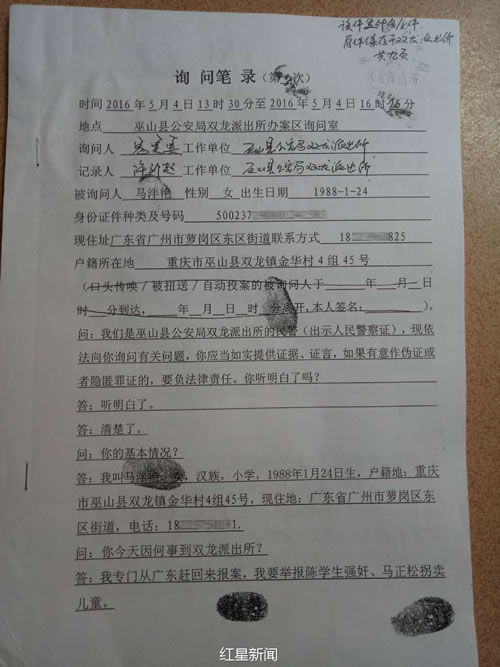 该件是
原件保存于双龙派出所
共九页
双龙派出所
询问笔录(第 次)
时间2016年5月4日13时30分至2016年5月4日16时 分
地点 巫山县公安局双龙派出所办案区询问室
询问人 工作单位 巫山县公安局双龙派出所
记录人 工作单位 巫山县公安局双龙派出所
被询问人 马泮艳 性别 女 出生日期 1988-1-24
身份证件种类及号码 500237
现住址广东省广州市萝岗区东区街道联系方式 18 825
户籍所在地 重庆市巫山县双龙镇金华村4组45号
(口头传唤/被扭送/自动投案的被询问人于 年 月 日
时 分到达, 年 月 日 时 分离开,本人签名: )。
问:我们是巫山县公安局双龙派出所的民警(出示人民警察证),现依
法向你询问有关问题,你应当如实提供证据、证言,如果有意作伪证或
者隐匿罪证的,要负法律责任。你听明白了吗?
答:听明白了。
答:清楚了。
问:你的基本情况?
答:我叫马泮艳,女,汉族,小学,1988年1月24日生,户籍地:重庆
市巫山县双龙镇金华村4组45号,现住地:广东省广州市萝岗区东
区街道,电话:18 1.
问:你今天因何事到双龙派出所?
答:我专门从广东赶回来报案,我要举报陈学生强奸、马正松拐卖
儿童。
红星新闻